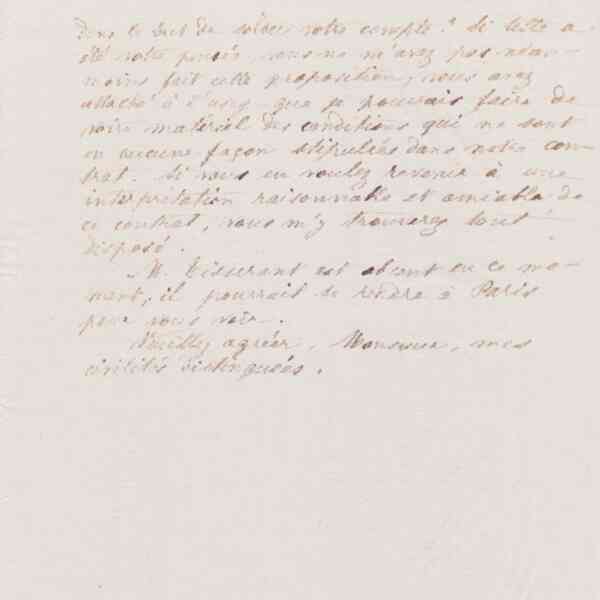 dans le but de solder notre compte ? Si telle a
été votre pensée, vous ne m'avez pas néan-
moins fait cette proposition, vous avez
attaché à l'usage que je pouvais faire de
votre matériel des conditions qui ne sont
en aucune façon stipulées dans notre con-
trat. Si vous en voulez revenir à une
interprétation raisonnable et amiable de
ce contrat, vous m'y trouverez tout
disposé.
M. Tisserant est absent en ce mo-
ment, il pourrait se rendre à Paris
pour vous voir.
Veuillez agréer, Monsieur, mes
civilités distinguées.